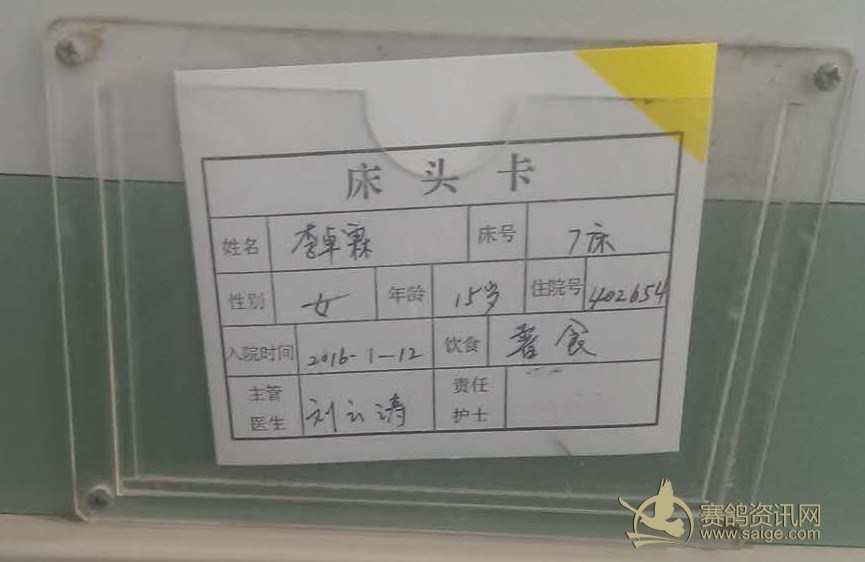 床头卡
姓名 李卓霖 床号 7床
性别 女 年龄 15岁 住院号 402654
入院时间 2016-1-12 饮食 普食
主管医生 刘云涛 责任护士
赛鸽资讯网
www.saige.com